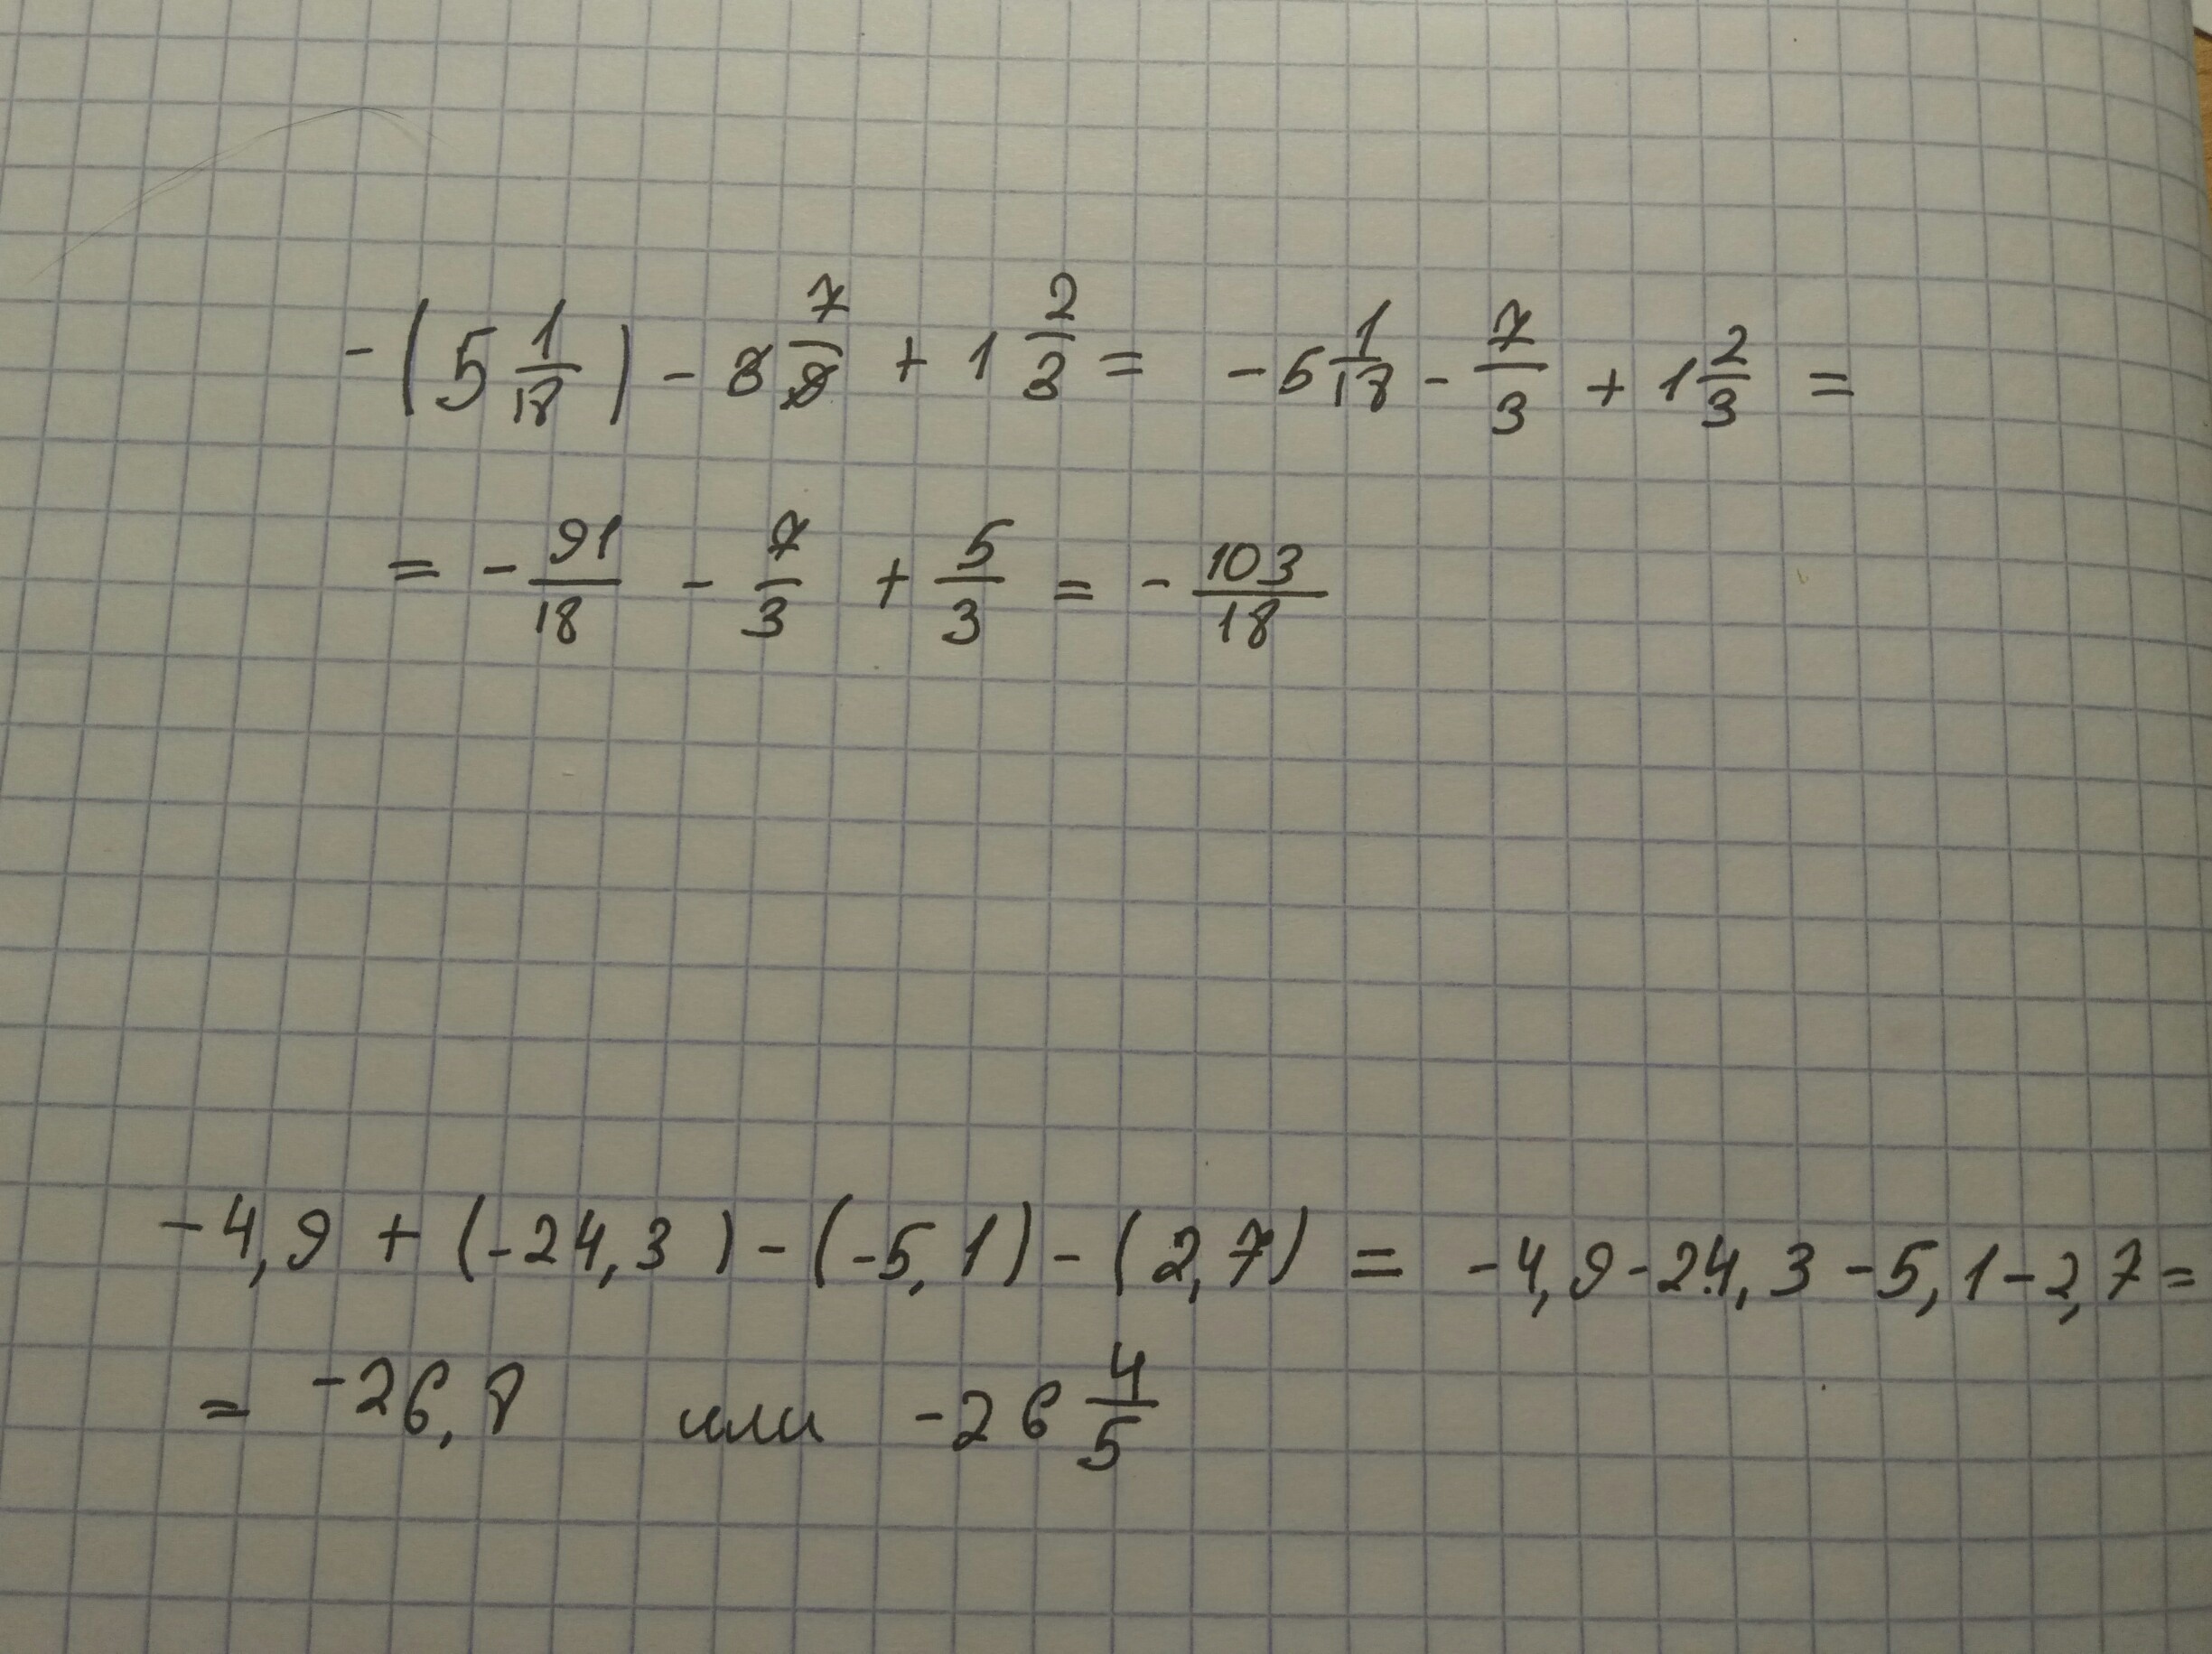 -(5 1/18) - 3 7/9 + 1 2/3 = -5 1/18 - 7/3 + 1 2/3 =
= - 91/18 - 7/3 + 5/3 = - 103/18
-4,9 + (-24,3) - (-5,1) - (2,7) = -4,9-24,3-5,1-2,7=
= -26,8 или -26 4/5